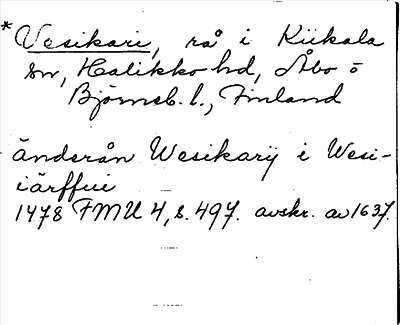 * Vesikari, rå i Kiikala
sn, Halikko hd, Åbo o
Björneb. l., Finland
änderån Wesikarij i Wesi-
iärffui
1478 FMU 4, s. 497. avskr. av 1637.